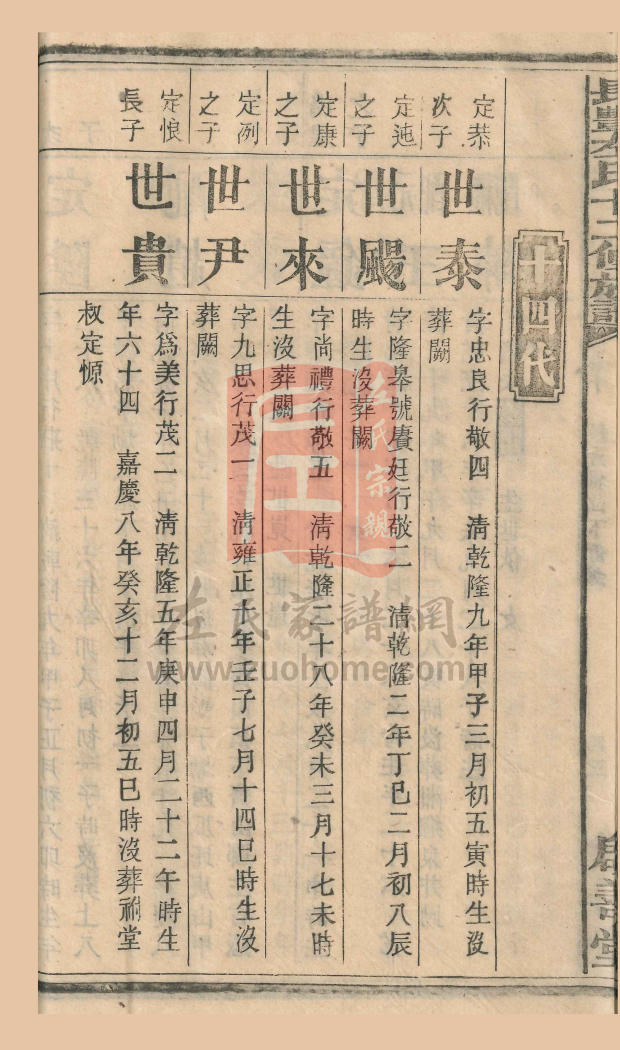 十四代
定恭
次子
世泰
字忠良行敬四 清乾隆九年甲子三月初五寅時生沒
葬闕
定迆
之子
世颺
字隆皋號賡廷行敬二 清乾隆二年丁巳二月初八辰
時生沒葬闕
定康
之子
世來
字尚禮行敬五 清乾隆二十八年癸未三月十七未時
生沒葬闕
定冽
之子
世尹
字九思行茂一 清雍正十年壬子七月十四巳時生沒
葬闕
定悢
長子
世貴
字爲美行茂二 清乾隆五年庚申四月二十二午時生
年六十四 嘉慶八年癸亥十二月初五巳時沒葬祔堂
叔定愿
左氏宗親
左氏家譜網
www.zuohome.com